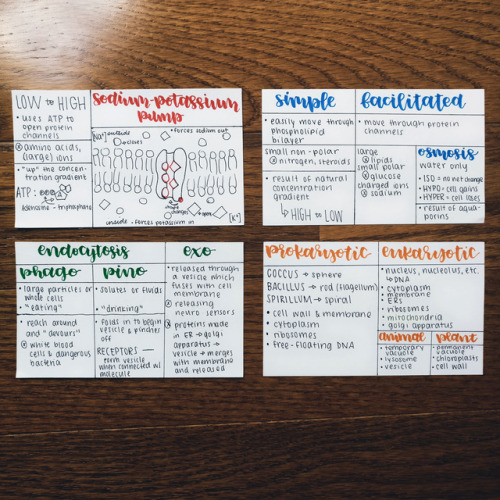 LOW to HIGH
• uses ATP to
open protein
channels
amino acids,
(large) ions
• "up" the concen-
tration gradient
ATP:
adenosine - triphosphate
sodium-potassium
pump
[Na+] outside
closes
• forces sodium out
opens
[K+]
inside - forces potassium in
simple
• easily move through
phospholipid
bilayer
small non-polar
nitrogen, steroids
• result of natural
concentration
gradient
↳ HIGH to LOW
facilitated
• move through protein
channels
large
lipids
small polar
glucose
charged ions
sodium
osmosis
water only
• ISO = no net change
• HYPO = cell gains
• HYPER = cell loses
• result of aqua-
porins
endocytosis
phago
• large particles or
whole cells
• "eating"
• reach around
and "devours"
white blood
cells & dangerous
bacteria
pino
• solutes or fluids
• "drinking"
• folds in to begin
vesicle & pinches
off
RECEPTORS —
form vesicle
when connected w/
molecule
exo
• released through
a vesicle which
fuses with cell
membrane
releasing
neuro sensors
proteins made
in ER → golgi
apparatus →
vesicle → merges
with membrane
and released
prokaryotic
COCCUS → sphere
BACILLUS → rod (flagellum)
SPIRILLUM → spiral
• cell wall & membrane
• cytoplasm
• ribosomes
• free-floating DNA
eukaryotic
• nucleus, nucleolus, etc.
↳ DNA
• cytoplasm
• membrane
• ERs
• ribosomes
• mitochondria
• golgi apparatus
animal
• temporary
vacuole
• lysosome
• vesicle
plant
• permanent
vacuole
• chloroplasts
• cell wall